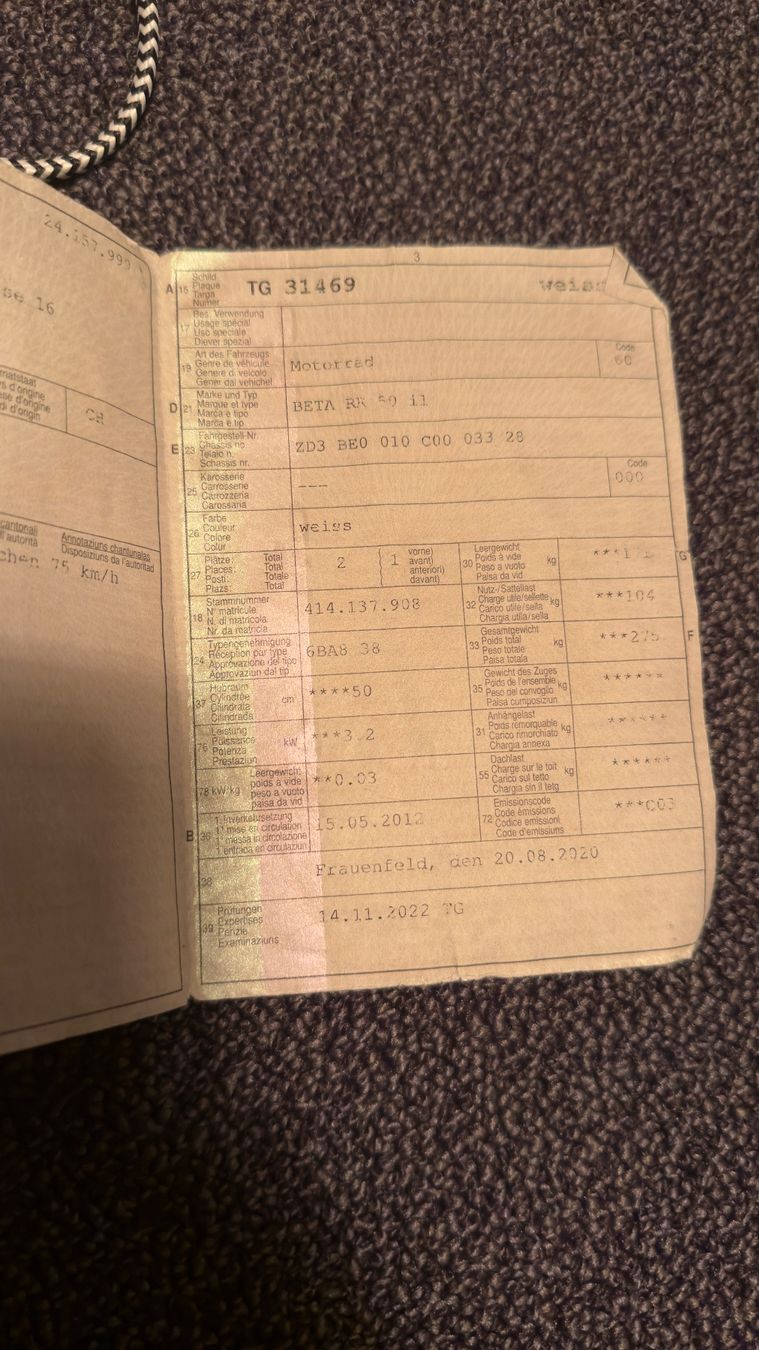 24.157.999
se 16
CH
75 km/h
Annotaziuns chantunalas
Disposiziuns da l'autoritad
3
A 15 Schild
Plaque
Targa
Numer
TG 31469 weiss
17 Bes. Verwendung
Usage spécial
Uso speciale
Diever spezial
19 Art des Fahrzeugs
Genre de véhicule
Genere di veicolo
Gener dal vehichel
Motorrad
Code
60
D 21 Marke und Typ
Marque et type
Marca e tipo
Marca e tip
BETA RR 50 il
E 23 Fahrgestell-Nr.
Châssis no
Telaio n.
Schassis nr.
ZD3 BE0 010 C00 033 28
25 Karosserie
Carrosserie
Carrozzeria
Carossaria
---
Code
000
26 Farbe
Couleur
Colore
Colur
weiss
27 Plätze: Total
Places: Total
Posti: Totale
Plazs: Total
2
1 vorne)
avant)
anteriori)
davant)
30 Leergewicht
Poids à vide kg
Peso a vuoto
Paisa da vid
G
18 Stammnummer
N° matricule
N. di matricola
Nr. da matricla
414.137.908
32 Nutz-/Sattellast
Charge utile/sellette kg
Carico utile/sella
Chargia utila/sella
***104
24 Typengenehmigung
Réception par type
Approvazione del tipo
Approvaziun dal tip
6BA8 38
33 Gesamtgewicht
Poids total kg
Peso totale
Paisa totala
***275
F
37 Hubraum
Cylindrée cm³
Cilindrata
Cilindrada
****50
35 Gewicht des Zuges
Poids de l'ensemble kg
Peso del convoglio
Paisa cumposiziun
******
76 Leistung
Puissance kW
Potenza
Prestaziun
***3.2
31 Anhängelast
Poids remorquable kg
Carico rimorchiato
Chargia annexa
******
78 kW/kg Leergewicht
poids à vide
peso a vuoto
paisa da vid
**0.03
55 Dachlast
Charge sur le toit kg
Carico sul tetto
Chargia sin il tetg
******
B 36 1. Inverkehrsetzung
1re mise en circulation
1a messa in circolazione
1. entrada en circulaziun
15.05.2012
72 Emissionscode
Code émissions
Codice emissioni
Code d'emissiuns
***C03
38
Frauenfeld, den 20.08.2020
39 Prüfungen
Expertises
Perizie
Examinaziuns
14.11.2022 TG